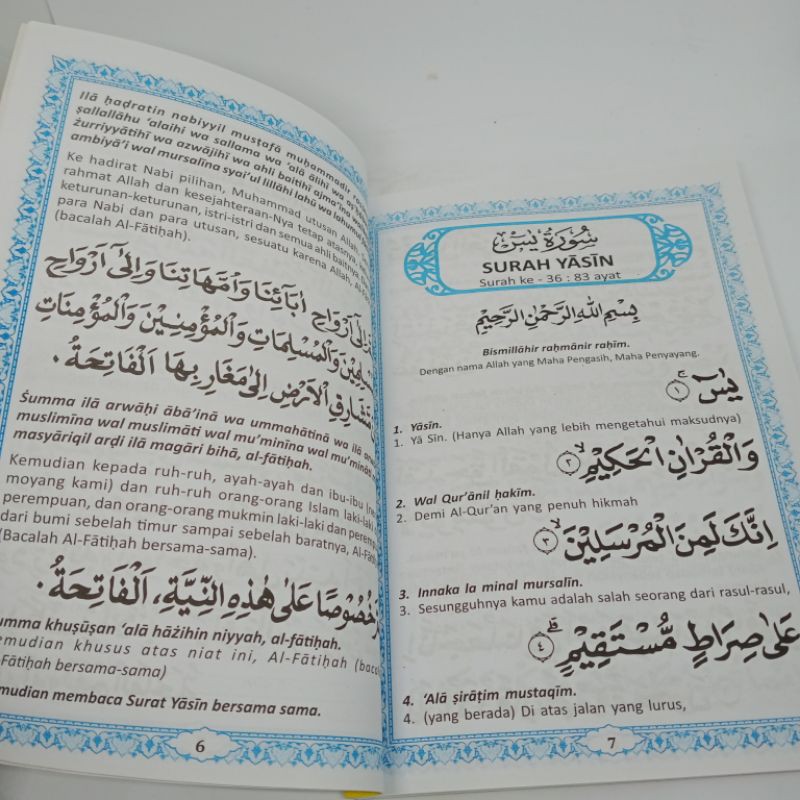 Ilā ḥaḍratin nabiyyil muṣṭafā muḥammadir
ṣallallāhu 'alaihi wa sallama wa 'alā ālihī wa
żurriyyātihī wa azwājihī wa ahli baitihī ajma'īna
ambiyā'i wal mursalīna syai'ul lillāhi lahū wa lahumul
Ke hadirat Nabi pilihan, Muhammad utusan Allah,
rahmat Allah dan kesejahteraan-Nya tetap atasnya,
keturunan-keturunan, istri-istri dan semua ahli baitnya,
para Nabi dan para utusan, sesuatu karena Allah,
(bacalah Al-Fātiḥah).
اِلٰى اَرْوَاحِ اٰبَآئِنَا وَاُمَّهَاتِنَا وَاِلٰى اَرْوَاحِ
وَالْمُسْلِمَاتِ وَالْمُؤْمِنِيْنَ وَالْمُؤْمِنَاتِ
مَشَارِقِ الْاَرْضِ اِلٰى مَغَارِبِهَا اَلْفَاتِحَةُ.
Ṡumma ilā arwāḥi ābā'inā wa ummahātinā wa ilā
muslimīna wal muslimāti wal mu'minīna wal
masyāriqil arḍi ilā magāri bihā, al-fātiḥah.
Kemudian kepada ruh-ruh, ayah-ayah dan ibu-ibu
moyang kami) dan ruh-ruh orang-orang Islam laki-laki
perempuan, dan orang-orang mukmin laki-laki dan
dari bumi sebelah timur sampai sebelah baratnya,
(Bacalah Al-Fātiḥah bersama-sama).
خُصُوْصًا عَلٰى هٰذِهِ النِّيَّةِ، اَلْفَاتِحَةُ.
umma khuṣūṣan 'alā hāżihin niyyah, al-fātiḥah.
emudian khusus atas niat ini, Al-Fātiḥah
-Fātiḥah bersama-sama)
mudian membaca Surat Yāsīn bersama sama.
6
سُوْرَةُ يٰسٓ
SURAH YĀSĪN
Surah ke - 36 : 83 ayat
بِسْمِ اللّٰهِ الرَّحْمٰنِ الرَّحِيْمِ
Bismillāhir raḥmānir raḥīm.
Dengan nama Allah yang Maha Pengasih, Maha Penyayang.
يٰسٓ ۚ ١
1. Yāsīn.
1. Yā Sīn. (Hanya Allah yang lebih mengetahui maksudnya)
وَالْقُرْاٰنِ الْحَكِيْمِ ۙ ٢
2. Wal Qur'ānil ḥakīm.
2. Demi Al-Qur'an yang penuh hikmah
اِنَّكَ لَمِنَ الْمُرْسَلِيْنَ ۙ ٣
3. Innaka la minal mursalīn.
3. Sesungguhnya kamu adalah salah seorang dari rasul-rasul,
عَلٰى صِرَاطٍ مُّسْتَقِيْمٍ ۗ ٤
4. 'Alā ṣirāṭim mustaqīm.
4. (yang berada) Di atas jalan yang lurus,
7